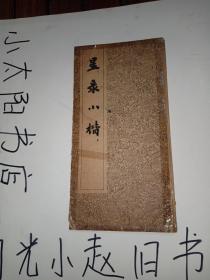 小太阳书店
星录小楷
阳光小赵旧书